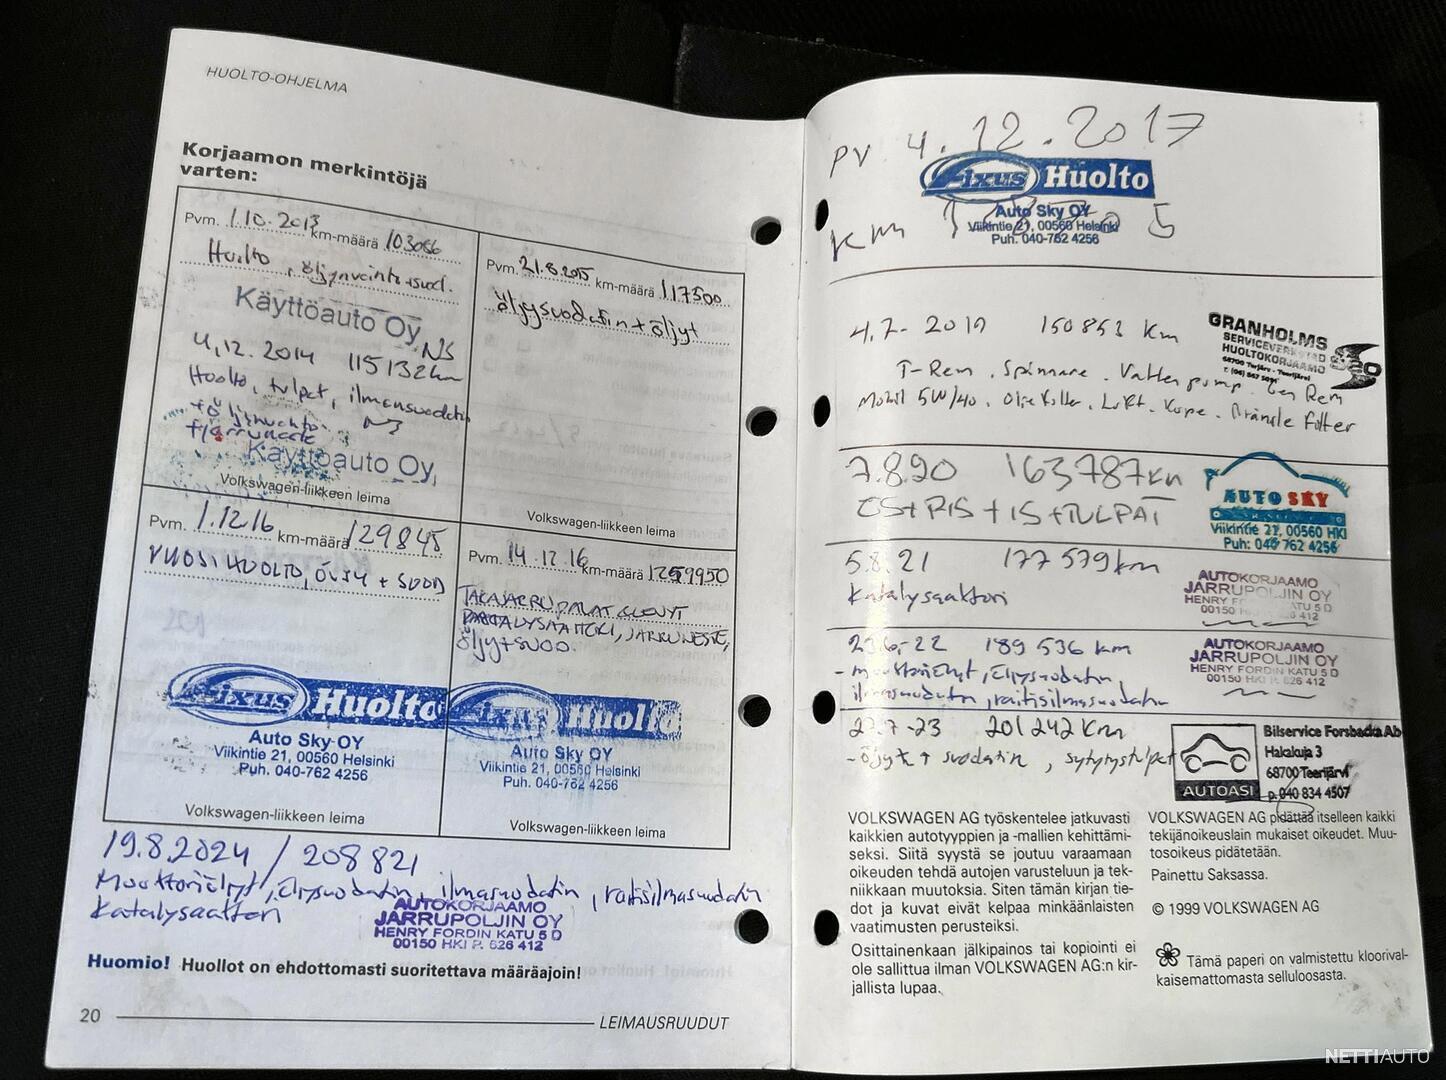 HUOLTO-OHJELMA
Korjaamon merkintöjä
varten:
Pvm. 1.10.2013 km-määrä 103086
Huolto, öljynvaihto+suod.
Käyttöauto Oy
4.12.2014 115132km
Huolto, tulpat, ilmansuodatin
Käyttöauto Oy,
Volkswagen-liikkeen leima
Pvm. 21.8.2015 km-määrä 117500
öljysuodatin + öljyt
Volkswagen-liikkeen leima
Pvm. 1.12.16 km-määrä 129845
VUOSIHUOLTO, ÖLJY + SUOD
Fixus Huolto
Auto Sky OY
Viikintie 21, 00560 Helsinki
Puh. 040-762 4256
Volkswagen-liikkeen leima
Pvm. 14.12.16 km-määrä
TAKAJARRUPALAT
KATALYSAATTORI, JARRUNESTE,
öljyt+suod.
Fixus Huolto
Auto Sky OY
Viikintie 21, 00560 Helsinki
Puh. 040-762 4256
Volkswagen-liikkeen leima
19.8.2024 / 208821
Moottoriöljyt, öljysuodatin, ilmasuodatin, raitisilmasuodatin
Katalysaattori
AUTOKORJAAMO
JARRUPOLJIN OY
HENRY FORDIN KATU 5 D
00150 HKI P. 626 412
Huomio! Huollot on ehdottomasti suoritettava määräajoin!
20 LEIMAUSRUUDUT
PV 4.12.2017
Fixus Huolto
Auto Sky OY
Viikintie 21, 00560 Helsinki
Puh. 040-762 4256
Km
4.7-2019 150853 km
GRANHOLMS
SERVICEVERKSTAD
HUOLTOKORJAAMO
68700 Terjärv - Teerijärvi
T-Rem. Spännare. Vattenpump. Gen Rem
Mobil 5W/40. Oljefilter. Luft. Kupe. Bränsle filter
7.8.20 163787km
ÖS+RIS+IS+TULPAT
AUTO SKY
Viikintie 21, 00560 HKI
Puh: 040 762 4256
5.8.21 177579km
Katalysaattori
AUTOKORJAAMO
JARRUPOLJIN OY
HENRY FORDIN KATU 5 D
00150 HKI P. 626 412
23.6.-22 189 536 km
- moottoriöljyt, öljysuodatin
ilmasuodatin, raitisilmasuodatin
AUTOKORJAAMO
JARRUPOLJIN OY
HENRY FORDIN KATU 5 D
00150 HKI P. 626 412
27.7-23 201242 Km
- öljyt + suodatin, sytytystulpat
AUTOASI
Bilservice Forsbacka Ab
Hakakuja 3
68700 Teerijärvi
p. 040 834 4507
VOLKSWAGEN AG työskentelee jatkuvasti
kaikkien autotyyppien ja -mallien kehittämi-
seksi. Siitä syystä se joutuu varaamaan
oikeuden tehdä autojen varusteluun ja tek-
niikkaan muutoksia. Siten tämän kirjan tie-
dot ja kuvat eivät kelpaa minkäänlaisten
vaatimusten perusteiksi.
Osittainenkaan jälkipainos tai kopiointi ei
ole sallittua ilman VOLKSWAGEN AG:n kir-
jallista lupaa.
VOLKSWAGEN AG pidättää itselleen kaikki
tekijänoikeuslain mukaiset oikeudet. Muu-
tosoikeus pidätetään.
Painettu Saksassa.
© 1999 VOLKSWAGEN AG
Tämä paperi on valmistettu kloorival-
kaisemattomasta selluloosasta.
NETTIAUTO